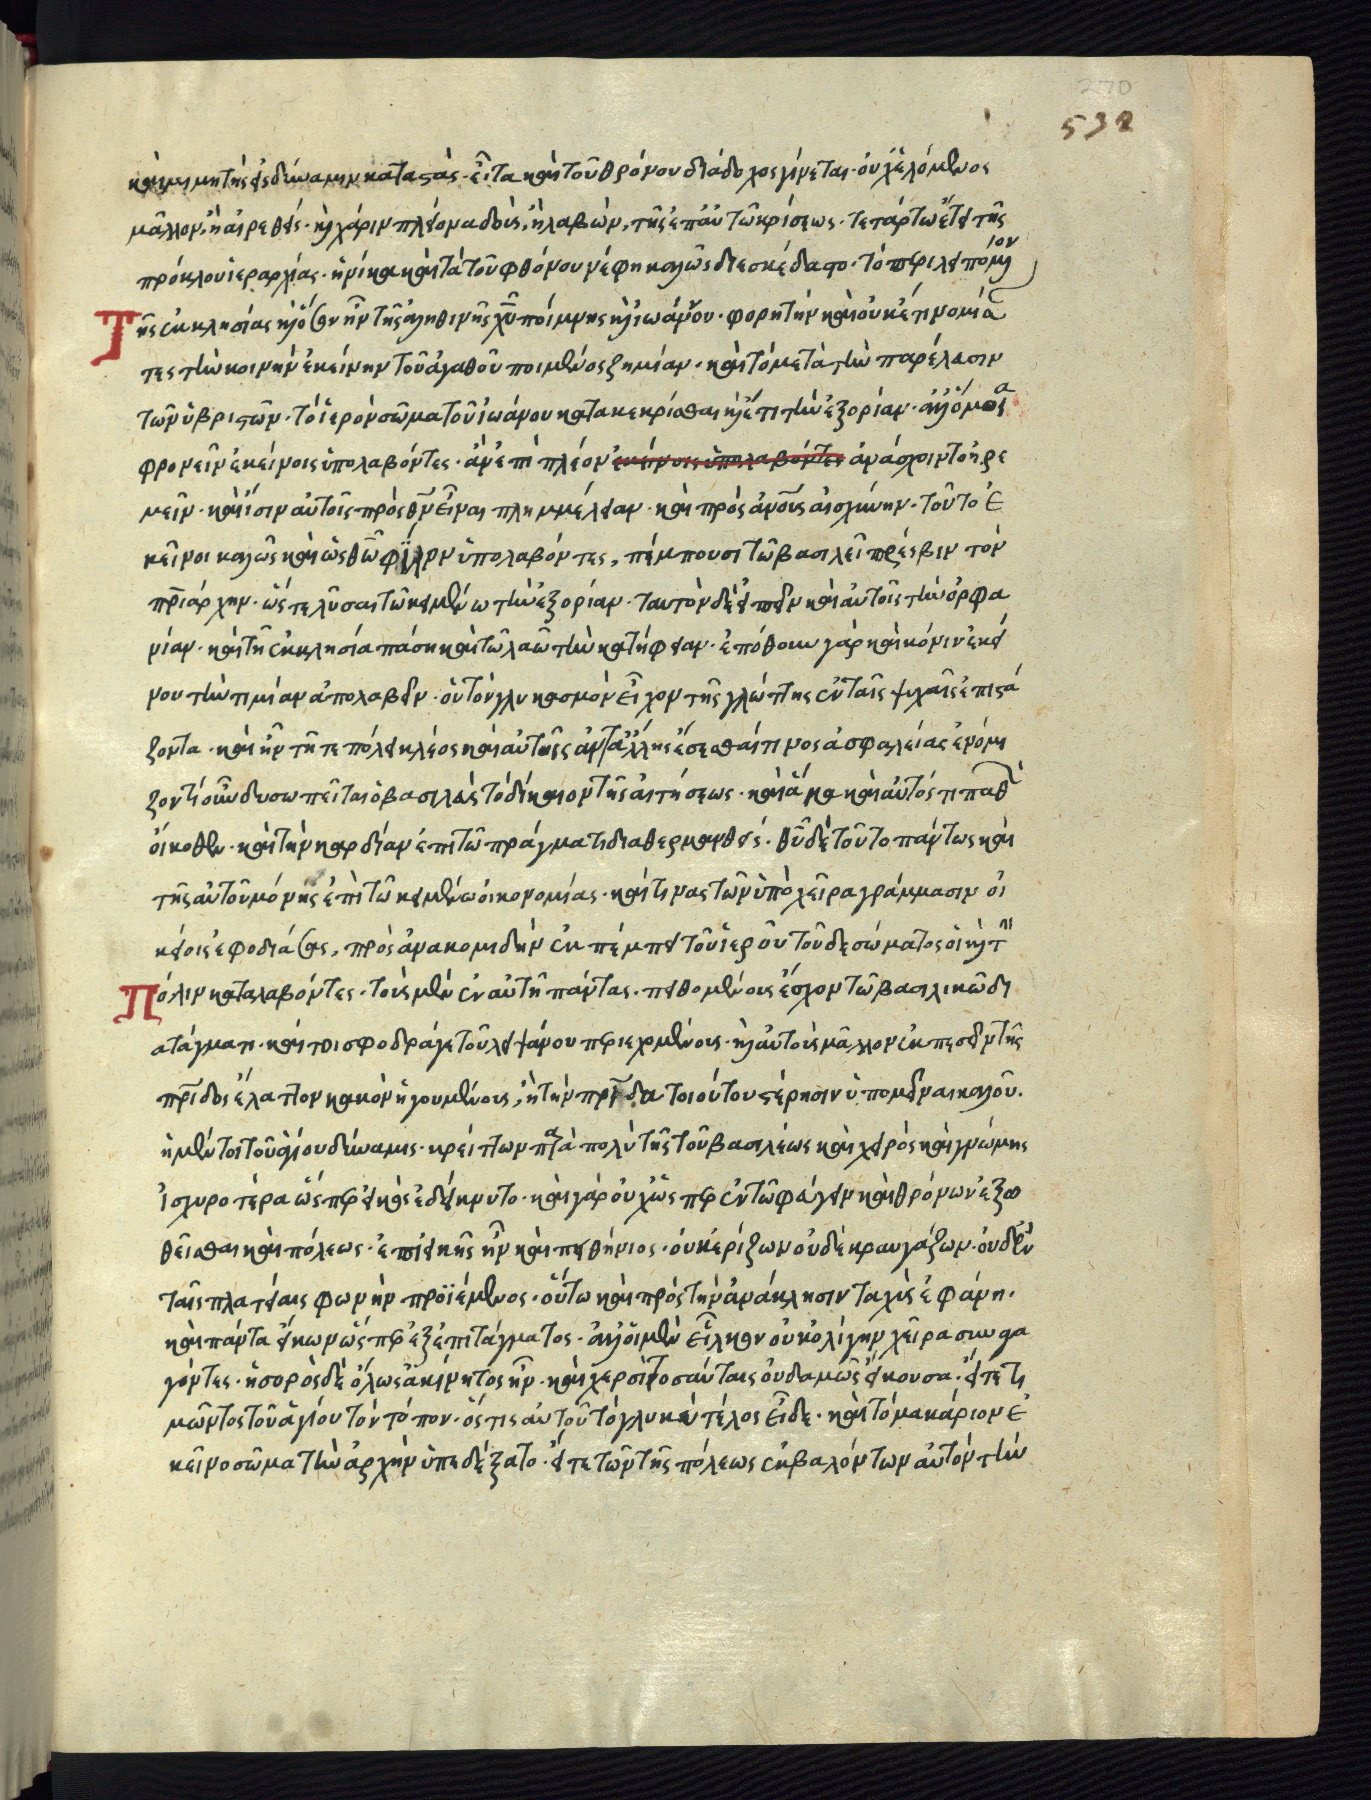 270
532
καὶ μιμητὴς εἰς δύναμιν καταστάς· εἶτα καὶ τοῦ θρόνου διάδοχος γίνεται· οὐχ ἑλόμενος
μᾶλλον, ἢ αἱρεθείς· καὶ χάριν πλείονα δοὺς, ἢ λαβὼν, τῆς ἐπ' αὐτῶ κρίσεως· τετάρτω ἔτει τῆς
πρόκλου ἱεραρχίας· ἡνίκα καὶ τὰ τοῦ φθόνου νέφη καλῶς διεσκέδαστο· τὸ περιλειπόμενον
τῆς ἐκκλησίας καὶ ὅσον ἦν τῆς ἀληθινῆς χυ ποίμνης καὶ ἰωάννου· φορητὴν καὶ οὐκέτι νομίσαν
τες τὴν κοινὴν ἐκείνην τοῦ ἀγαθοῦ ποιμένος ζημίαν· καὶ τὸ μετὰ τὴν παρέλασιν
τῶν ὑβριστῶν· τὸ ἱερὸν σῶμα τοῦ ἰωάννου κατακεκρίσθαι καὶ ἔτι τὴν ἐξορίαν· ἀλλ' ὅμοια
φρονεῖν ἐκείνοις ὑπολαβόντες· ἂν ἐπὶ πλέον ἐκείνοις ὑπολαβόντες ἀνάσχοιντο ἠρε
μεῖν· καὶ ἴσην αὐτοῖς πρὸς θν εἶναι πλημμέλειαν· καὶ πρὸς ἀνους αἰσχύνην· τοῦτο ἐ
κεῖνοι καλῶς καὶ ὡς θῶ φίλον ὑπολαβόντες, πέμπουσι τῶ βασιλεῖ πρέσβιν τὸν
πριάρχην· ὥστε λῦσαι τῶ κειμένω τὴν ἐξορίαν· ταυτὸν δὲ εἰπεῖν καὶ αὐτοῖς τὴν ὀρφα
νίαν· καὶ τῆ ἐκκλησία πάση καὶ τῶ λαῶ τὴν κατήφειαν· ἐπόθουν γὰρ καὶ κόνιν ἐκεί
νου τὴν τιμίαν ἀπολαβεῖν· οὗ τὸν γλυκασμὸν εἶχον τῆς γλώττης ἐν ταῖς ψυχαῖς ἐπιστά
ζοντα· καὶ ἦν τῆ τε πόλει κλέος καὶ αὐτῆς ἀντάλλης ἔσεσθαί τινος ἀσφαλείας ἐνόμι
ζον τί οὖν δυσωπεῖται ὁ βασιλεὺς τὸ δίκαιον τῆς αἰτήσεως· καὶ ἅμα καὶ αὐτός τι παθὼν
οἴκοθεν· καὶ τὴν καρδίαν ἐπὶ τῶ πράγματι διαθερμανθείς· θυ δὲ τοῦτο πάντως καὶ
τῆς αὐτοῦ μόνης ἐπὶ τῶ κειμένω οἰκονομίας· καί τινας τῶν ὑπὸ χεῖρα γράμμασιν οἰ
κείοις ἐφοδιάσας, πρὸς ἀνακομιδὴν ἐκπέμπει τοῦ ἱεροῦ τοῦδε σώματος οἳ καὶ τὴν
πόλιν καταλαβόντες· τοὺς μὲν ἐν αὐτῆ πάντας· πειθομένους ἔσχον τῶ βασιλικῶ δι
ατάγματι· καί τοι σφοδρά γε τοῦ λειψάνου περιεχομένους· καὶ αὐτοὺς μᾶλλον ἐκπεσεῖν τῆς
πρίδος ἔλαττον κακὸν ἡγουμένους, ἢ τὴν πρίδα τοιούτου στέρησιν ὑπομεῖναι καλοῦ.
ἡ μέντοι τοῦ ἁγίου δύναμις· κρείττων κατὰ πολὺ τῆς τοῦ βασιλέως καὶ χειρὸς καὶ γνώμης
ἰσχυροτέρα ὥσπερ εἰκὸς ἐδείκνυτο· καὶ γὰρ οὐχ ὥσπερ ἐν τῶ φεύγειν καὶ θρόνων ἐξω
θεῖσθαι καὶ πόλεως· ἐπιεικὴς ἦν καὶ πειθήνιος· οὐκ ἐρίζων οὐδὲ κραυγάζων· οὐδὲ ἐν
ταῖς πλατείαις φωνὴν προϊέμενος· οὕτω καὶ πρὸς τὴν ἀνάκλησιν ταχὺς ἐφάνη·
καὶ πάντα εἴκων ὥσπερ ἐξ ἐπιτάγματος· ἀλλ' οἱ μὲν εἷλκον οὐκ ὀλίγην χεῖρα συναγα
γόντες· ἡ σορὸς δὲ ὅλως ἀκίνητος ἦν· καὶ χερσὶ τοσαύταις οὐδαμῶς εἴκουσα· εἴτε τι
μῶντος τοῦ ἁγίου τὸν τόπον· ὅστις αὐτοῦ τὸ γλυκὺ τέλος εἶδε· καὶ τὸ μακάριον ἐ
κεῖνο σῶμα τὴν ἀρχὴν ὑπεδέξατο· εἴτε τῶν τῆς πόλεως ἐκβαλόντων αὐτὸν τὴν